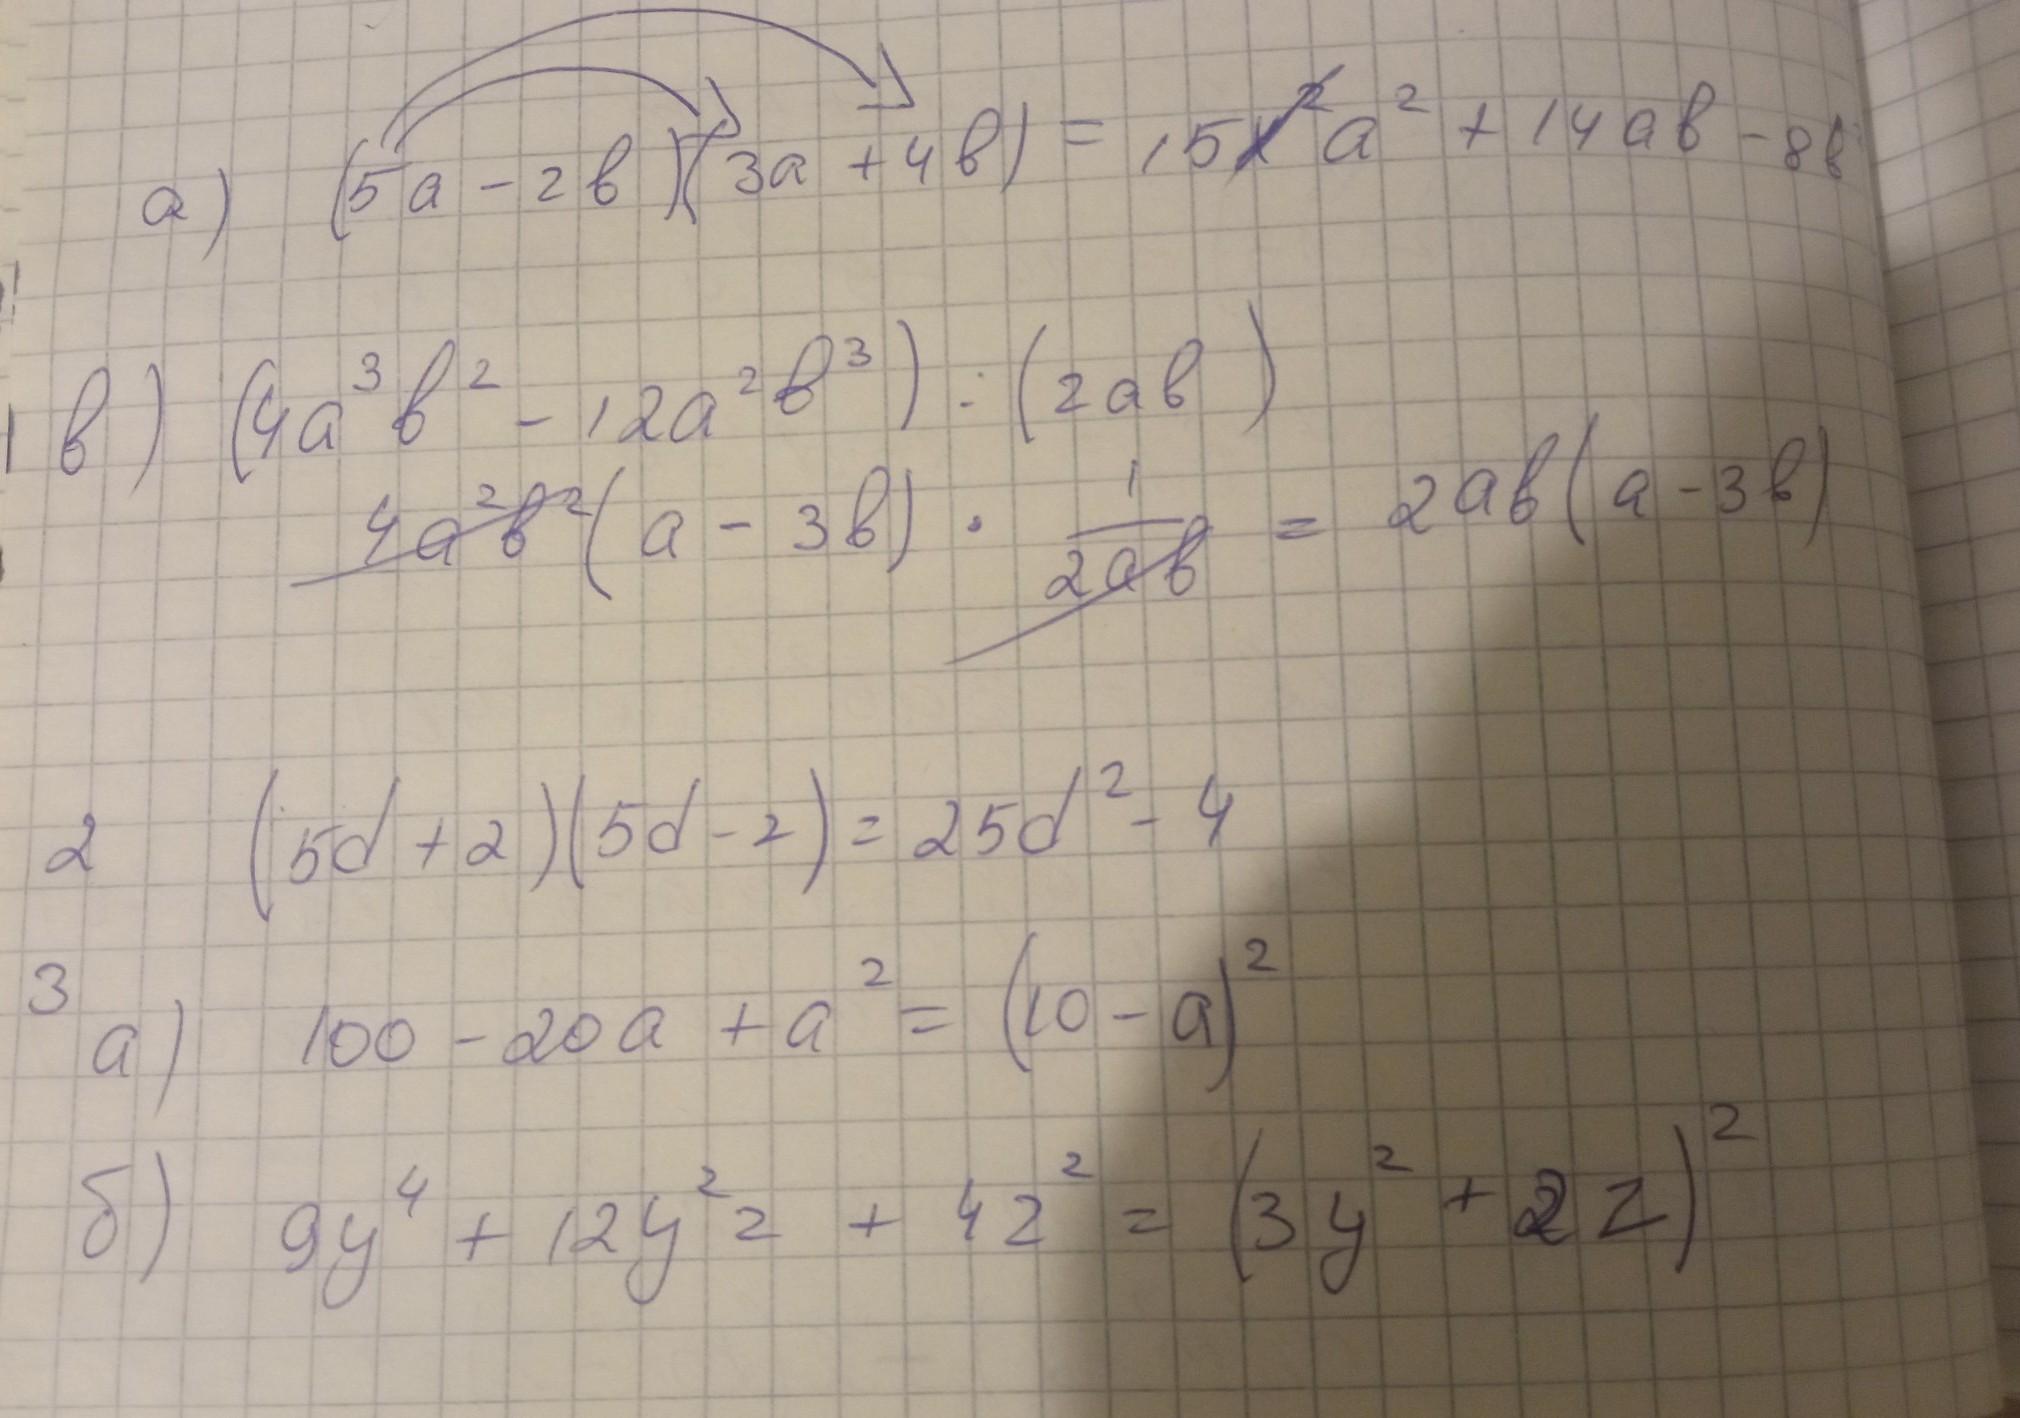 а) (5a - 2b)(3a + 4b) = 15a² + 14ab - 8b
1 в) (4a³b² - 12a²b³) : (2ab)
4a²b²(a - 3b) · 1/2ab = 2ab(a - 3b)
2 (5d + 2)(5d - 2) = 25d² - 4
3
а) 100 - 20a + a² = (10 - a)²
б) 9y⁴ + 12y²z + 4z² = (3y² + 2z)²